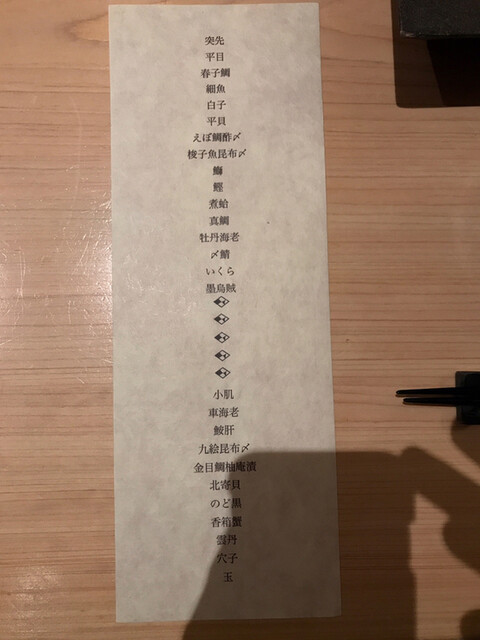 突先
平目
春子鯛
細魚
白子
平貝
えぼ鯛酢〆
梭子魚昆布〆
鰤
鰹
煮蛤
真鯛
牡丹海老
〆鯖
いくら
墨烏賊
小肌
車海老
鮟肝
九絵昆布〆
金目鯛柚庵漬
北寄貝
のど黒
香箱蟹
雲丹
穴子
玉